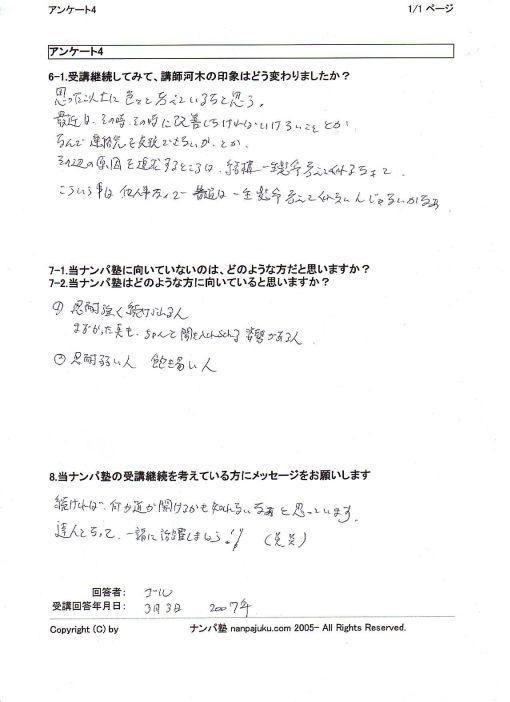 アンケート4
1/1 ページ
アンケート4
6-1.受講継続してみて、講師河木の印象はどう変わりましたか？
思った以上に色々と考えているなと思う。
最近は、その時、その時に改善しなければいけないこととか
なんで連絡先を交換できないか、とか、
その辺の原因を追求するところは、結構一生懸命考えてくれるなぁって
こういう事は他人事なんで普通は一生懸命考えてくれないんじゃないかなぁ
7-1.当ナンパ塾に向いていないのは、どのような方だと思いますか？
7-2.当ナンパ塾はどのような方に向いていると思いますか？
① 忍耐強く続けられる人
まずかった点も、ちゃんと聞き入れられる姿勢がある人
② 忍耐弱い人 飽き易い人
8.当ナンパ塾の受講継続を考えている方にメッセージをお願いします
続ければ、何か道が開けるかも知れないなぁと思っています。
達人となって、一緒に活躍しましょう!! (笑笑)
回答者: ゴール
受講回答年月日: 3月3日 2007年
Copyright (C) by ナンパ塾 nanpajuku.com 2005- All Rights Reserved.